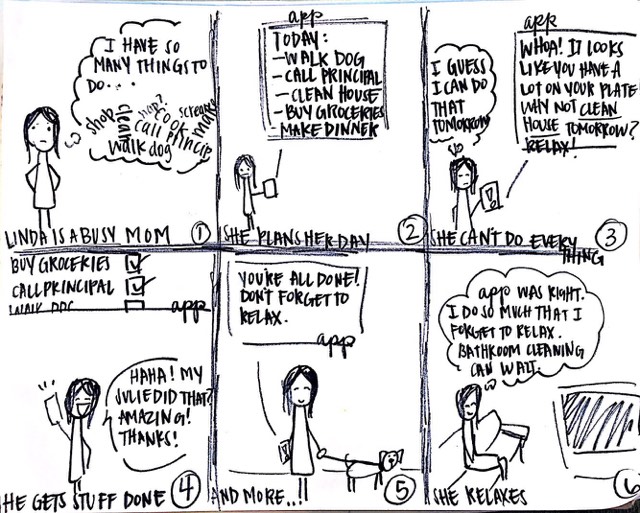 I HAVE SO
MANY THINGS TO
DO...
shop
clean
nap?
cook
scream
call princip
walk dog
LINDA IS A BUSY MOM
1
app
TODAY:
- WALK DOG
- CALL PRINCIPAL
- CLEAN HOUSE
- BUY GROCERIES
- MAKE DINNER
SHE PLANS HER DAY
2
I GUESS
I CAN DO
THAT
TOMORROW
app
WHOA! IT LOOKS
LIKE YOU HAVE A
LOT ON YOUR PLATE
WHY NOT CLEAN
HOUSE TOMORROW?
RELAX!
SHE CAN'T DO EVERY
THING
3
BUY GROCERIES
CALL PRINCIPAL
WALK DOG
app
HAHA! MY
JULIE DID THAT?
AMAZING!
THANKS!
HE GETS STUFF DONE
4
YOU'RE ALL DONE!
DON'T FORGET TO
RELAX.
app
AND MORE...!
5
app WAS RIGHT.
I DO SO MUCH THAT I
FORGET TO RELAX.
BATHROOM CLEANING
CAN WAIT.
SHE RELAXES
6